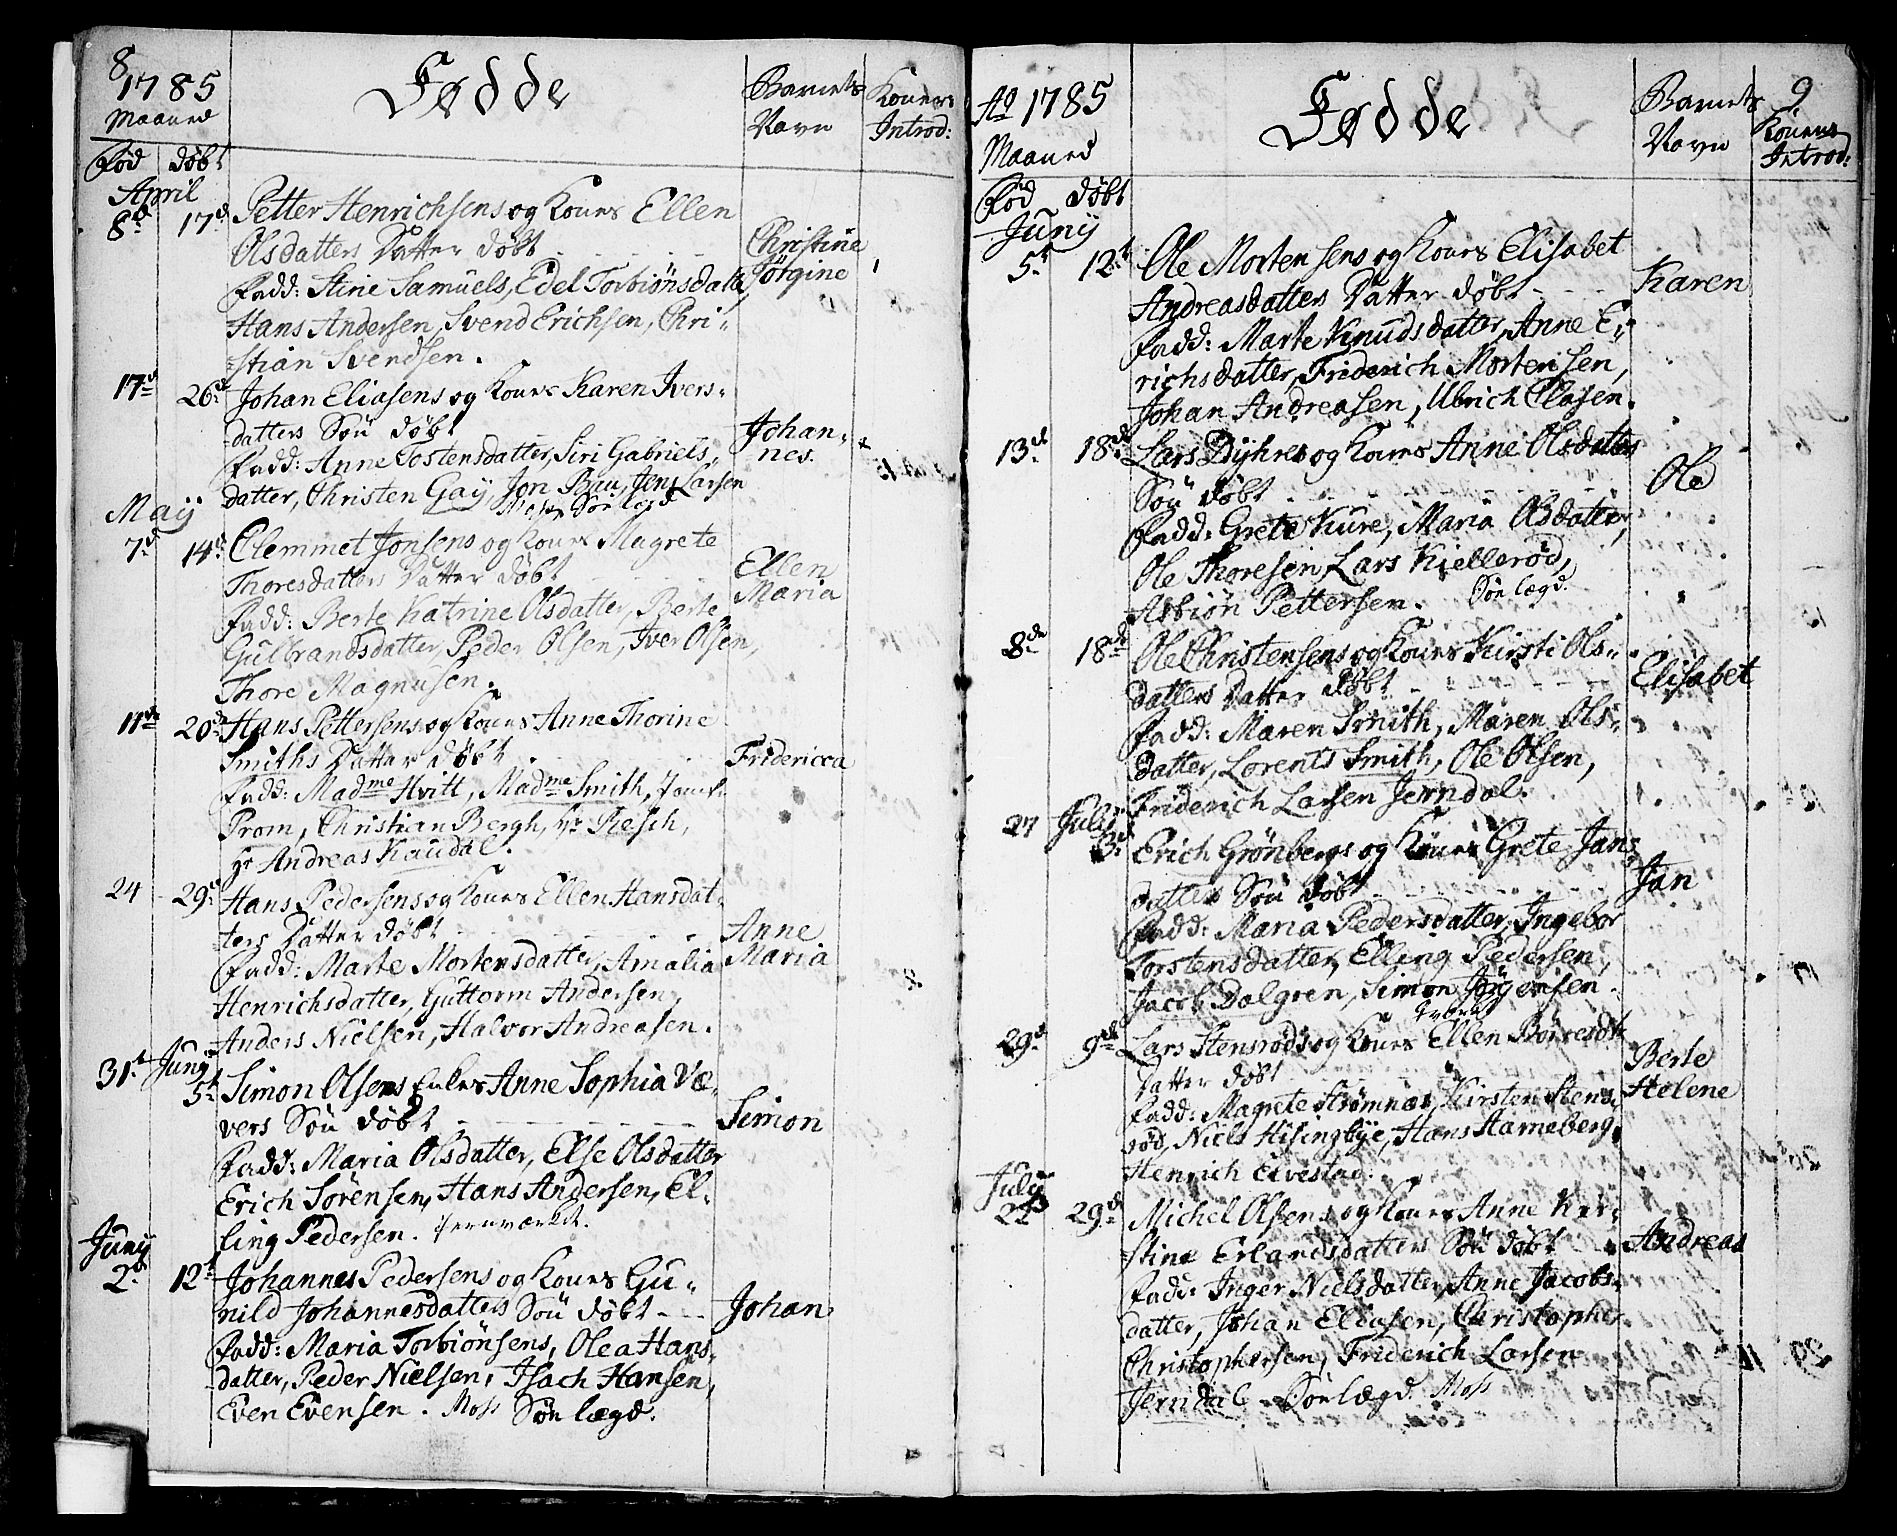 8
1785
Maaned
Fødde
Barnets
Navn
Koners
Introd:
Fød døbt
April
8d 17d Petter Henrichsens og Kones Ellen
Olsdatters Datter døbt
Christine
Jörgine
Fadd: Stine Samuels, Edel Torbiönsdatter,
Hans Andersen, Svend Erichsen, Chri-
-stian Svendsen.
17d 26d Johan Eliasens og Kones Karen Ivers-
datters Søn døbt
Johan-
nes.
Fadd: Anne Tostensdatter, Siri Gabriels-
datter, Christen Gay, Jon Buu, Jens Larsen
Moss Sönlægd
May
7d 14d Clemmet Jonsens og Kones Magrete
Thoresdatters Datter døbt
Ellen
Maria
Fadd: Berte Katrine Olsdatter, Berte
Gulbrandsdatter, Peder Olsen, Iver Olsen,
Thore Magnusen.
11de 20d Hans Pettersens og Kones Anne Thorine
Smiths Datter døbt
Fridericca
Fadd: Madme Hvitt, Madme Smith, Jomf.
Prom, Christian Bergh, Hr Resch,
Hr Andreas Kaudal.
24 29d Hans Pedersens og Kones Ellen Hansdat-
ters Datter døbt
Anne
Maria
Fadd: Marte Mortensdatter, Amalia
Henrichsdatter, Guttorm Andersen,
Anders Nielsen, Halvor Andreasen.
31t Juny
5t Simon Olsens Enkes Anne Sophia Væ-
vers Søn døbt
Simon
Fadd: Maria Olsdatter, Else Olsdatter
Erich Sørensen, Hans Andersen, El-
ling Pedersen. Jernværket.
Juny
2d 12t Johannes Pedersens og Kones Gu-
nild Johannesdatters Søn døbt
Johan
Fadd: Maria Torbiönsens, Olea Hans-
datter, Peder Nielsen, Isach Hansen,
Even Evensen. Moss Sönlægd.
9
Ao 1785
Maaned
Fødde
Barnets
Navn
Konens
Introd:
Fød døbt
Juny
5t 12t Ole Mortensens og Kones Elisabet
Andreasdatters Datter døbt
Karen
Fadd: Marte Knudsdatter, Anne E-
richsdatter, Friderich Mortensen,
Johan Andreasen, Ulrich Clasen.
13d 18d Lars Dyhres og Kones Anne Olsdatters
Søn døbt
Ole
Fadd: Grete Kure, Maria Olsdatter,
Ole Thoresen, Lars Kiellerød,
Asbiön Pettersen. Sönlægd.
8de 18d Ole Christensens og Kones Kirsti Ols-
datters Datter døbt
Elisabet
Fadd: Maren Smith, Maren Ols-
datter, Lorents Smith, Ole Olsen,
Friderich Larsen Jerndal.
27 July
3d Erich Grönbergs og Kones Grete Jans
datters Søn døbt
Jan
Fadd: Maria Pedersdatter, Ingebor
Torstensdatter, Elling Pedersen,
Jacob Dalgren, Simon Jørgensen.
29d 9d Lars Stensrøds og Kones Ellen Börresdtr
Datter døbt
Berte
Helene
Fadd: Magrete Strømnæs, Kirsten Stens-
rød, Niels Hisingbye, Hans Harneberg,
Henrich Elvestad.
July
22 29d Michel Olsens og Kones Anne Kar-
stine Erlandsdatters Søn døbt
Andreas
Fadd: Inger Nielsdatter, Anne Jacobs-
datter, Johan Eliasen, Christopher
Christophersen, Friderich Larsen
Jerndal. Sönlægd. Moss